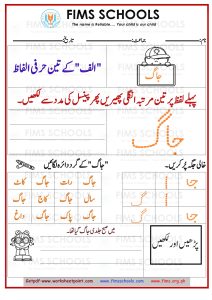 FIMS SCHOOLS
The name is Reliable... Your child is our child
نام: جماعت: تاریخ:
"الف" کے تین حرفی الفاظ
جاگ
پہلے لفظ پر تین مرتبہ انگلی پھیریں پھر پینسل کی مدد سے لکھیں۔
جاگ
خالی جگہ پر کریں۔
"جاگ" کے گرد دائرہ لگائیں۔
جا
ا گ
جا گ
جاگ رات جاگ کات
سال جاگ کاج جاگ
جاگ پاک جاگ داغ
پڑھیں اور لکھیں
میں صبح جلدی جاگ گیا تھا۔
www.worksheetpoint.com
www.fimsschools.com
www.fims.org.pk